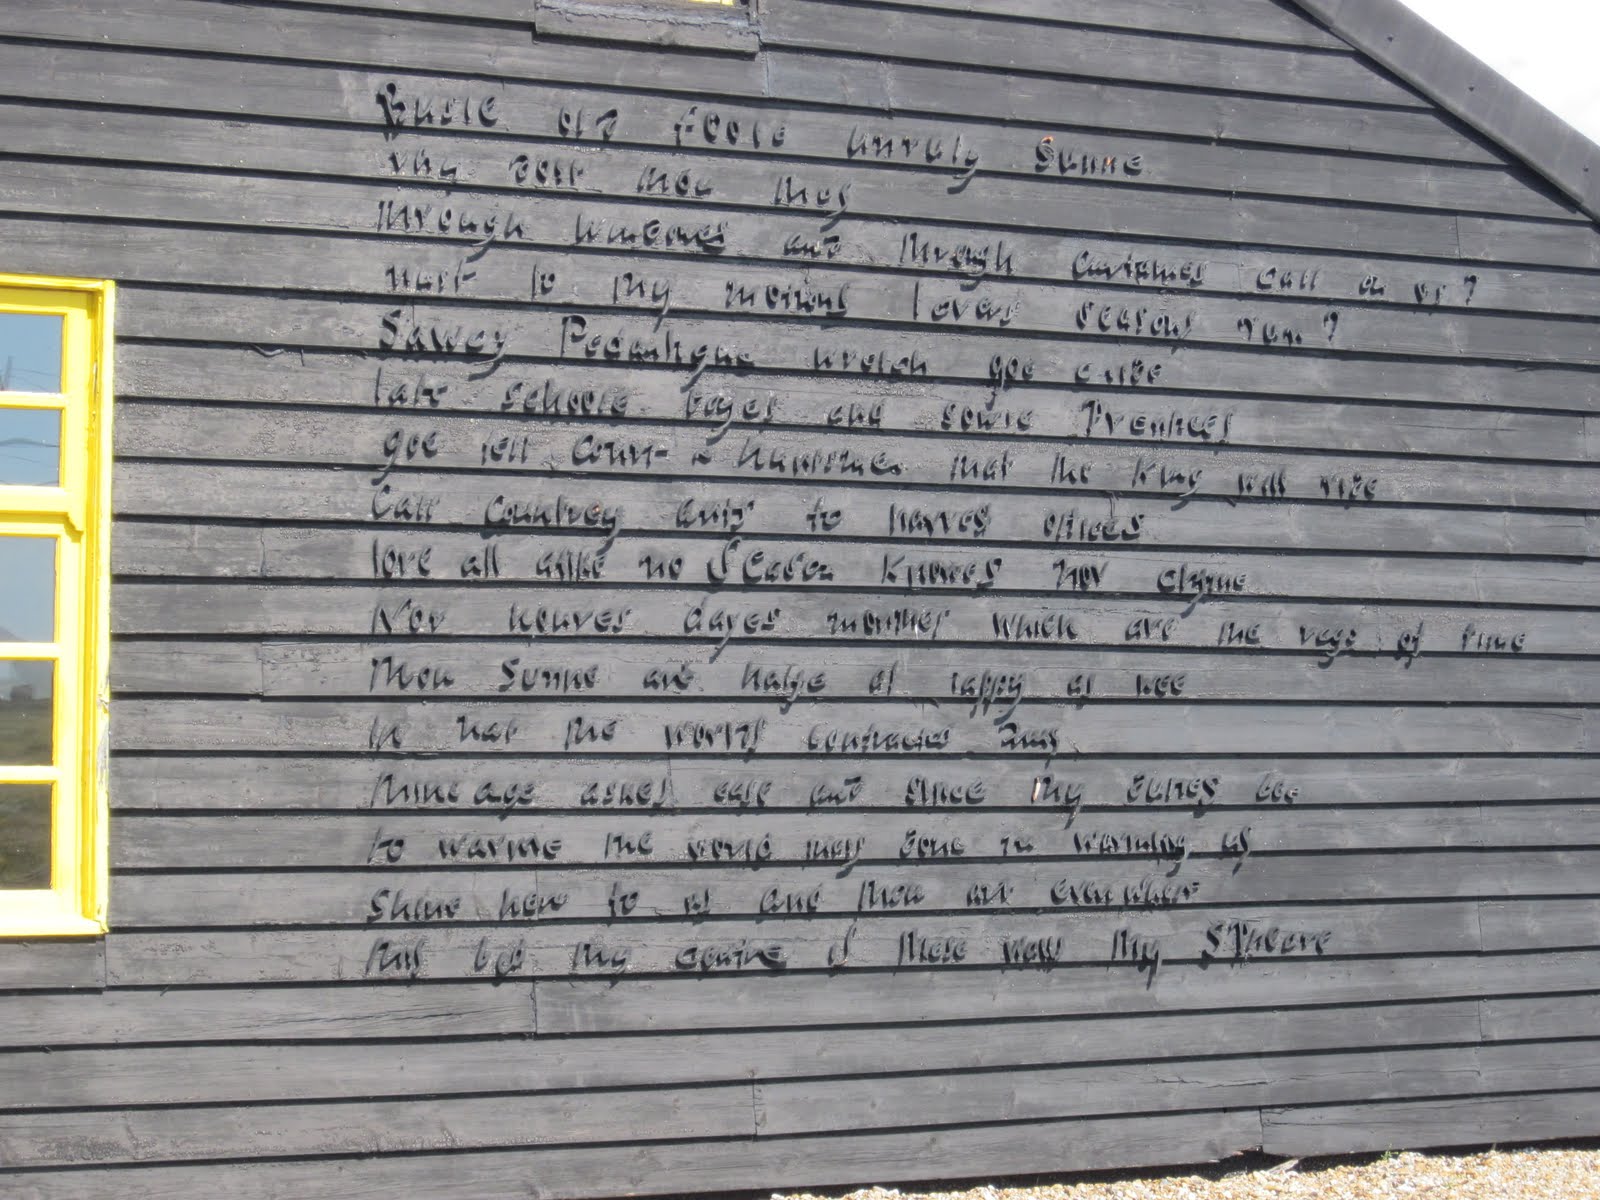 Busie old foole unruly Sunne
why dost thou thus
through windowes and through curtaines call on us?
Must to thy motions lovers seasons run?
Sawcy Pedantique wretch goe chide
late schoole boyes and sowre Prentices
goe tell Court-huntsmen that the King will ride
Call Countrey ants to harvest offices
love all alike no Season knowes nor clyme
Nor houres dayes months which are the rags of time
Thou Sunne art halfe as happy as wee
In that the world's contracted thus
Thine age askes ease and since thy duties bee
to warme the world that's done in warming us
Shine here to us and thou art everywhere
this bed thy centre is these walls thy Spheare